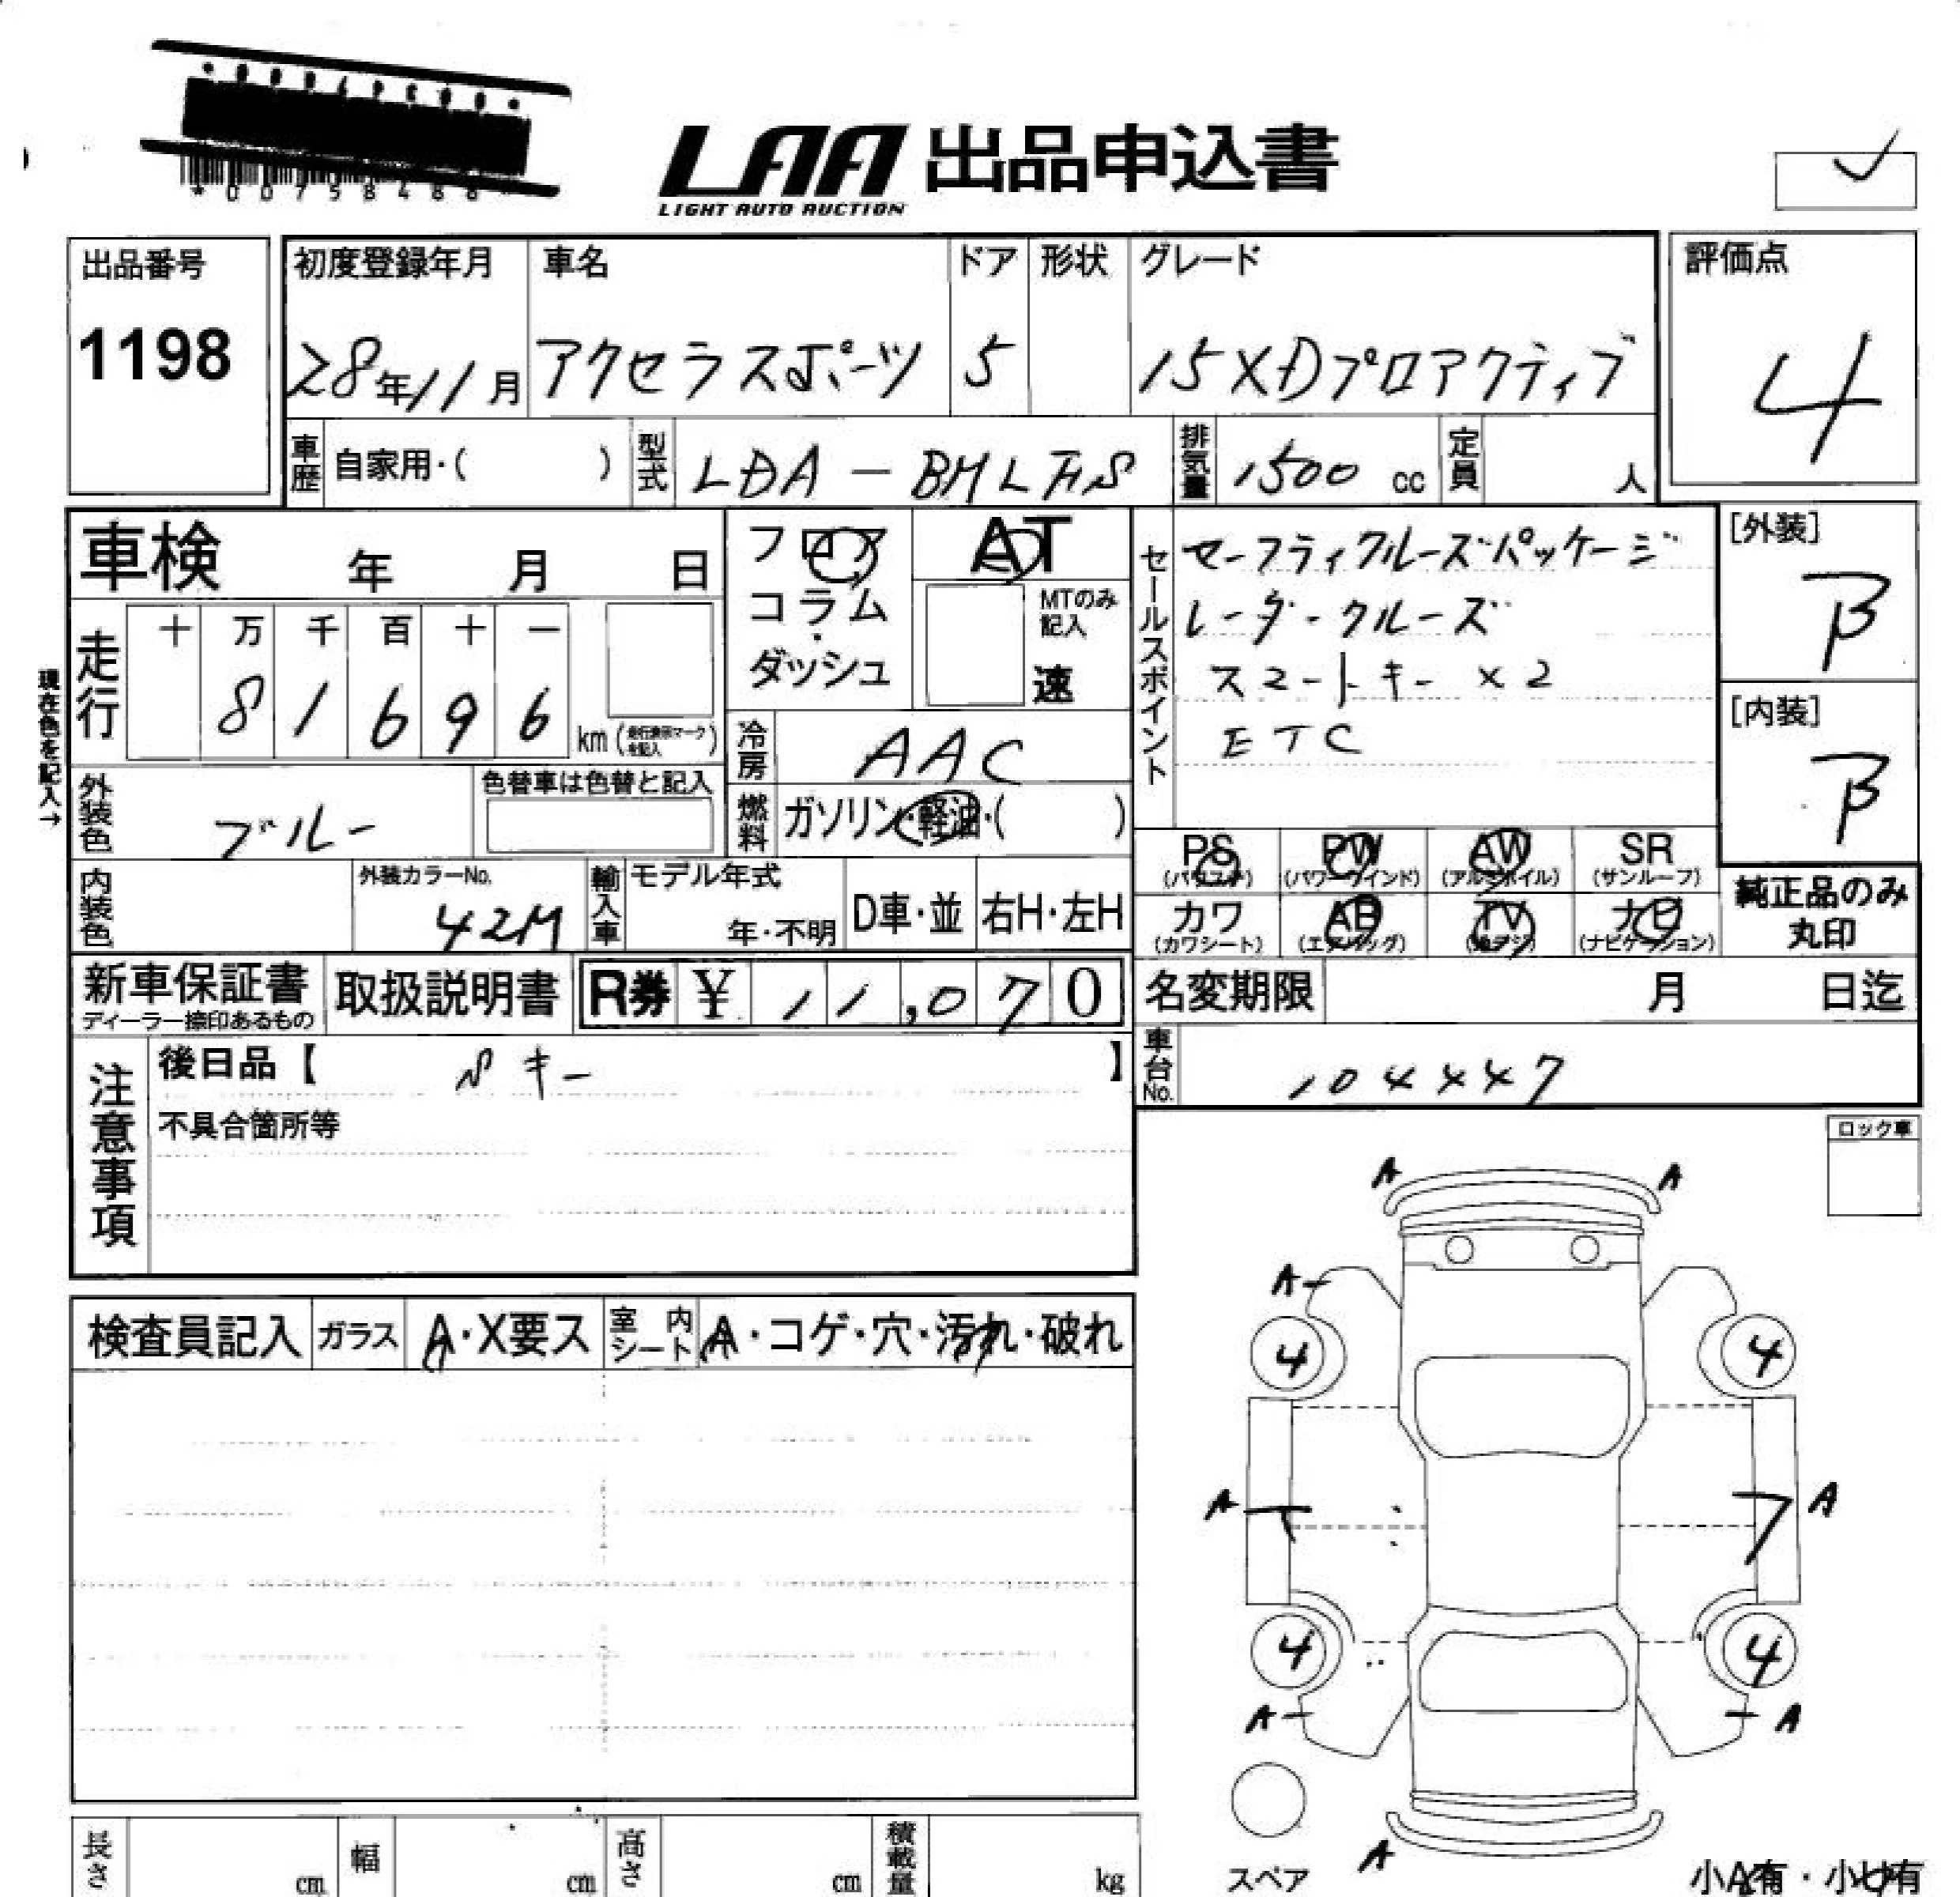 *00758488
LAA 出品申込書
LIGHT AUTO AUCTION
出品番号
1198
初度登録年月
28年11月
車名
アクセラスポーツ
ドア
5
形状
グレード
15XDプロアクティブ
評価点
4
車歴 自家用・( )
型式 LDA-BMLFS
排気量 1500 cc
定員 人
車検 年 月 日
フロア・コラム・ダッシュ
AT
MTのみ記入
速
セールスポイント
セーフティクルーズパッケージ
レーダークルーズ
スマートキー ×2
ETC
[外装]
B
[内装]
B
現在色を記入→
走行
十 万 千 百 十 一
8 1 6 9 6 km (走行表示マークを記入)
冷房 AAC
外装色 ブルー
色替車は色替と記入
燃料 ガソリン・軽油・( )
PS (パワステ)
PW (パワーウインド)
AW (アルミホイル)
SR (サンルーフ)
カワ (カワシート)
AB (エアバッグ)
TV (地デジ)
ナビ (ナビゲーション)
純正品のみ丸印
内装色
外装カラーNo.
42M
輸入車
モデル年式
年・不明
D車・並
右H・左H
新車保証書
ディーラー捺印あるもの
取扱説明書
R券 ¥ 11,070
名変期限 月 日迄
車台No.
注意事項
後日品【 Sキー 】
不具合箇所等
ロック車
検査員記入
ガラス A・X要ス
室内シート A・コゲ・穴・汚れ・破れ
A A
A
4 4
A A
4 4
A A
A
スペア
小A有・小U有
長さ cm
幅 cm
高さ cm
積載量 kg